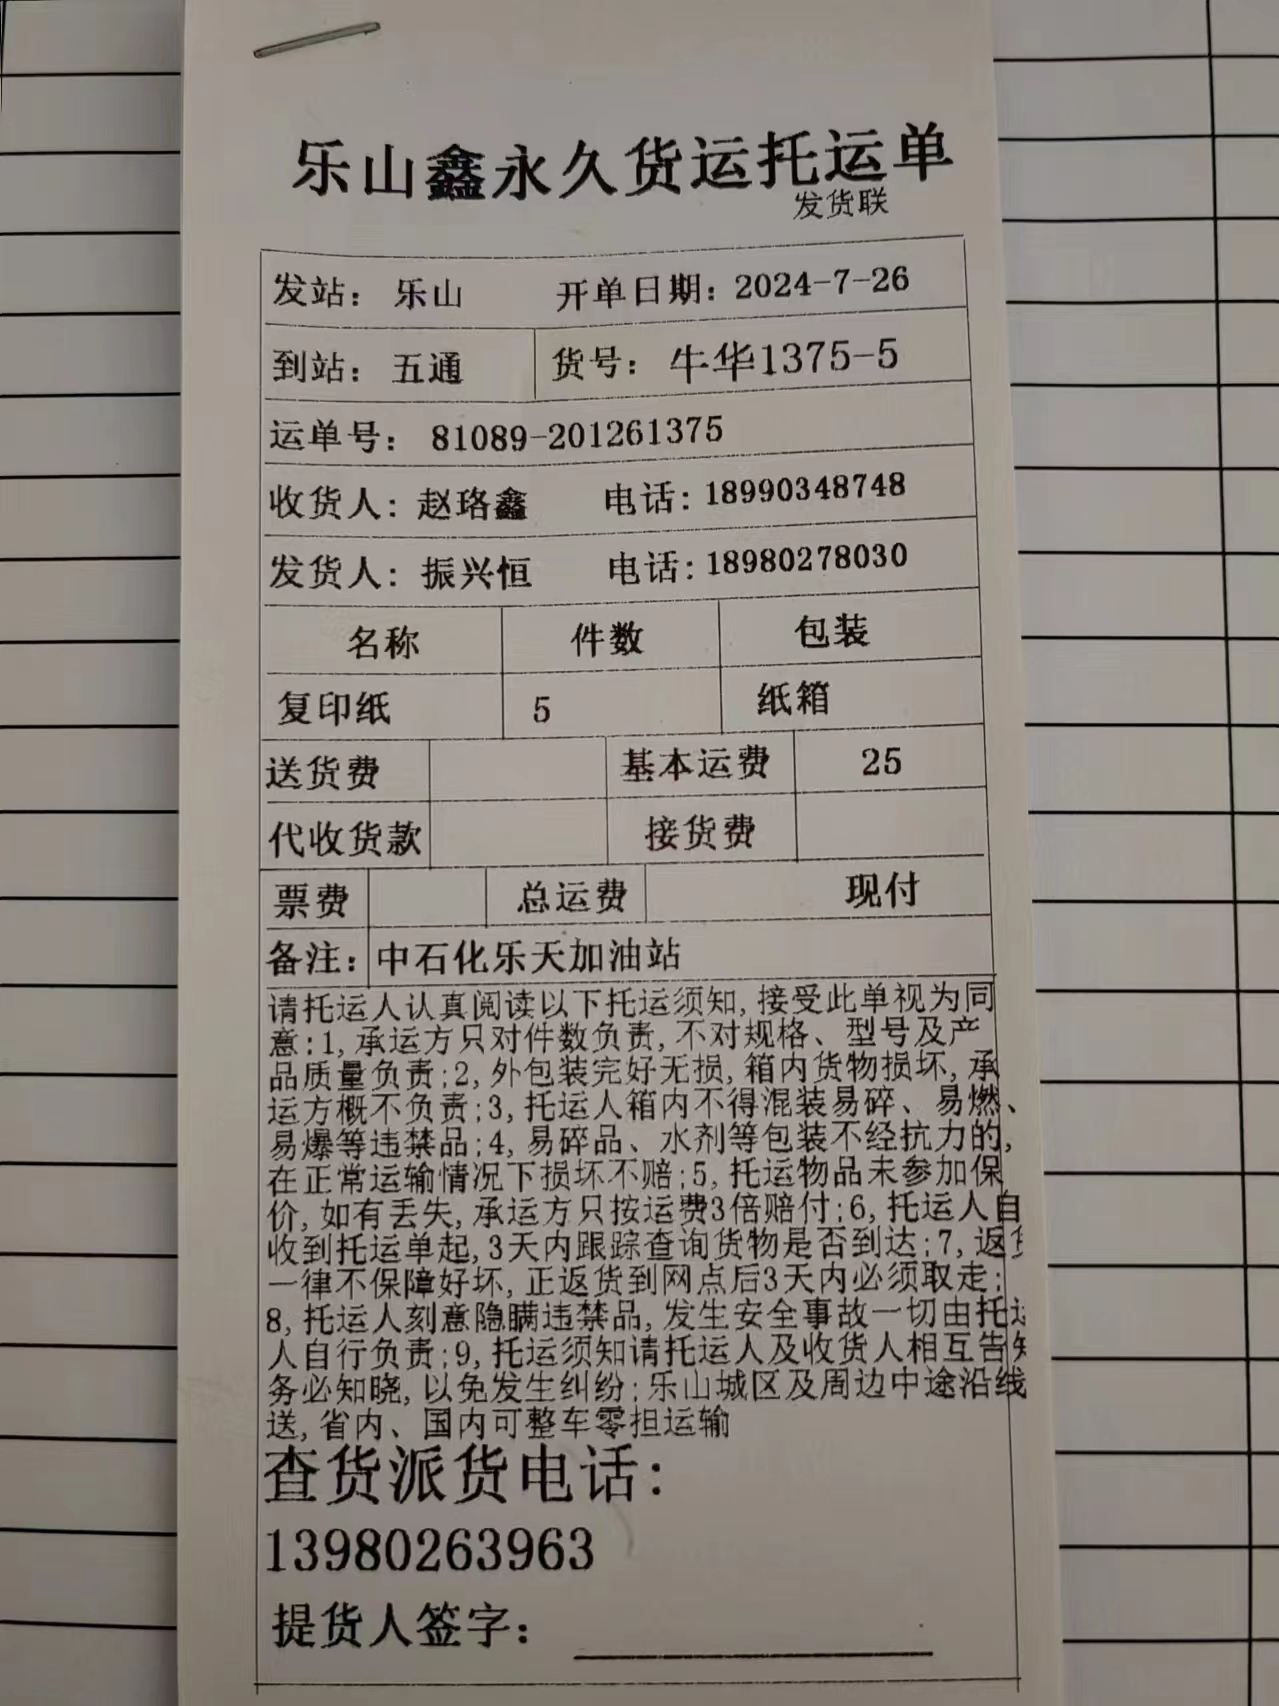 乐山鑫永久货运托运单
发货联
发站： 乐山 开单日期：2024-7-26
到站： 五通 货号： 牛华1375-5
运单号： 81089-201261375
收货人: 赵珞鑫 电话:18990348748
发货人: 振兴恒 电话:18980278030
名称 件数 包装
复印纸 5 纸箱
送货费 基本运费 25
代收货款 接货费
票费 总运费 现付
备注: 中石化乐天加油站
请托运人认真阅读以下托运须知,接受此单视为同
意:1,承运方只对件数负责,不对规格、型号及产
品质量负责;2,外包装完好无损,箱内货物损坏,承
运方概不负责;3,托运人箱内不得混装易碎、易燃、
易爆等违禁品;4,易碎品、水剂等包装不经抗力的,
在正常运输情况下损坏不赔;5,托运物品未参加保
价,如有丢失,承运方只按运费3倍赔付;6,托运人自
收到托运单起,3天内跟踪查询货物是否到达;7,返货
一律不保障好坏,正返货到网点后3天内必须取走;
8,托运人刻意隐瞒违禁品,发生安全事故一切由托运
人自行负责;9,托运须知请托运人及收货人相互告知
务必知晓,以免发生纠纷;乐山城区及周边中途沿线
送,省内、国内可整车零担运输
查货派货电话:
13980263963
提货人签字: